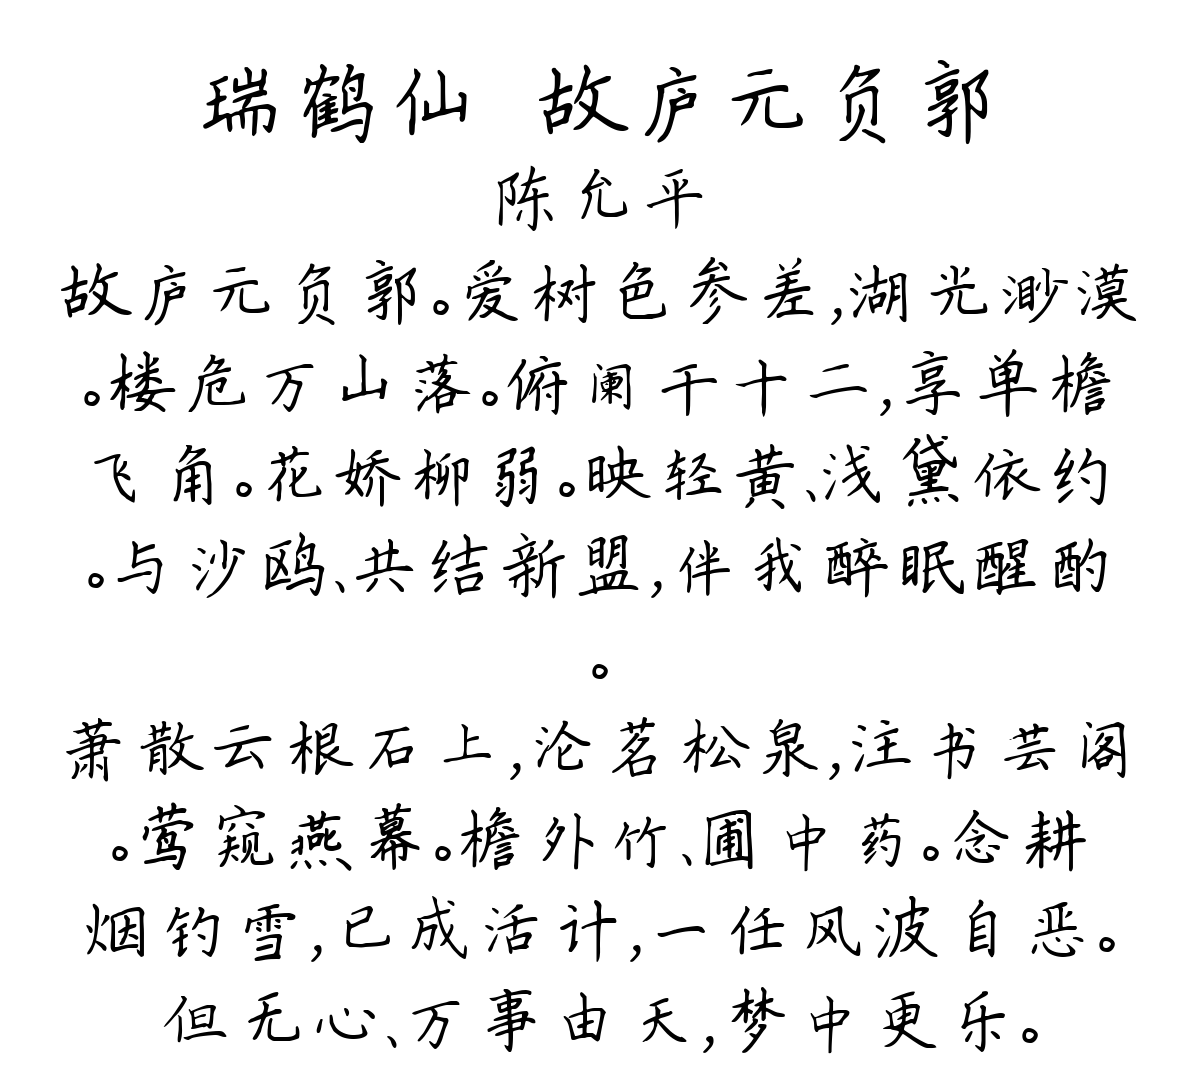 瑞鹤仙 故庐元负郭
陈允平
故庐元负郭。爱树色参差,湖光渺漠
。楼危万山落。俯阑干十二,享单檐
飞角。花娇柳弱。映轻黄、浅黛依约
。与沙鸥、共结新盟,伴我醉眠醒酌
。
萧散云根石上,沦茗松泉,注书芸阁
。莺窥燕幕。檐外竹、圃中药。念耕
烟钓雪,已成活计,一任风波自恶。
但无心、万事由天,梦中更乐。